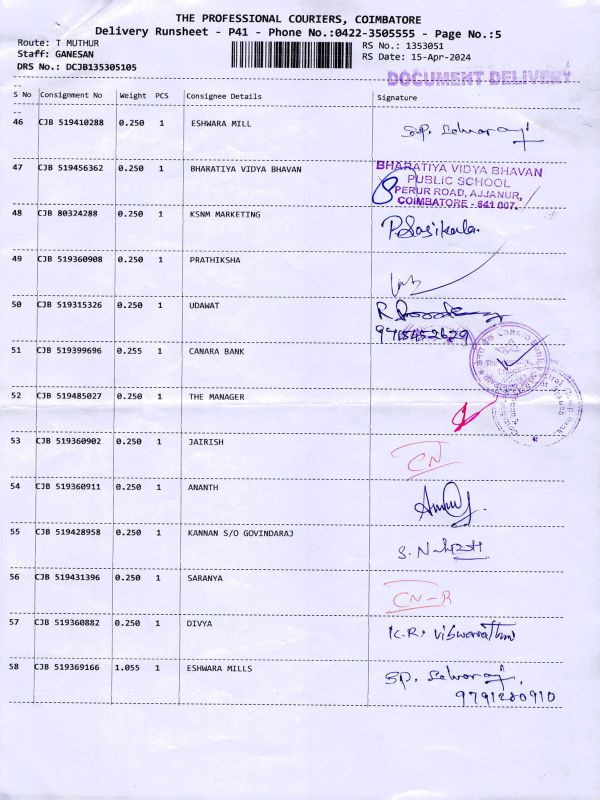 THE PROFESSIONAL COURIERS, COIMBATORE
Delivery Runsheet - P41 - Phone No.:0422-3505555 - Page No.:5
Route: T MUTHUR RS No.: 1353051
Staff: GANESAN RS Date: 15-Apr-2024
DRS No.: DCJB135305105
DOCUMENT DELIVERY
--
S No Consignment No Weight PCS Consignee Details Signature
--
46 CJB 519410288 0.250 1 ESHWARA MILL S.P. Selvaraj
47 CJB 519456362 0.250 1 BHARATIYA VIDYA BHAVAN
BHARATIYA VIDYA BHAVAN
PUBLIC SCHOOL
PERUR ROAD, AJJANUR,
COIMBATORE - 641 007.
48 CJB 80324288 0.250 1 KSNM MARKETING P. Sasikala
49 CJB 519360908 0.250 1 PRATHIKSHA
50 CJB 519315326 0.250 1 UDAWAT R
51 CJB 519399696 0.255 1 CANARA BANK
52 CJB 519485027 0.250 1 THE MANAGER
53 CJB 519360902 0.250 1 JAIRISH CN
54 CJB 519360911 0.250 1 ANANTH
55 CJB 519428958 0.250 1 KANNAN S/O GOVINDARAJ
56 CJB 519431396 0.250 1 SARANYA CN-R
57 CJB 519360882 0.250 1 DIVYA K.R. Viswanathan
58 CJB 519369166 1.055 1 ESHWARA MILLS SP. Selvaraj,
9791280910